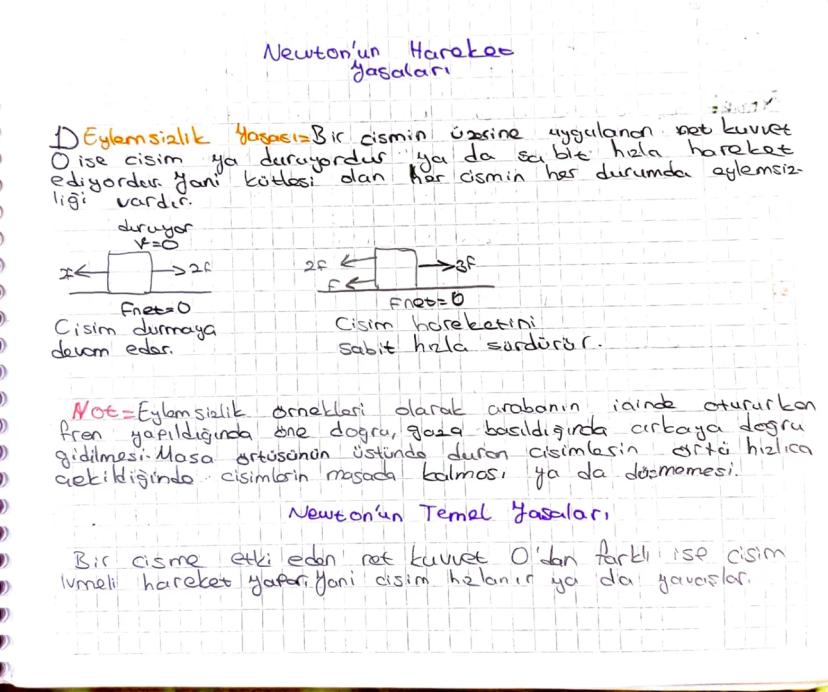 Newton'un Hareket
Yasaları
1) Eylemsizlik Yasası = Bir cismin üzerine uygulanan net kuvvet
0 ise cisim ya duruyordur ya da sabit hızla hareket
ediyordur. Yani kütlesi olan her cismin her durumda eylemsiz-
liği vardır.
duruyor
V=0
2F
2F
3F
F
Fnet=0
Fnet=0
Cisim durmaya
devam eder.
Cisim hareketini
sabit hızla sürdürür.
Not = Eylemsizlik örnekleri olarak arabanın içinde otururken
fren yapıldığında öne doğru, gaza basıldığında arkaya doğru
gidilmesi. Masa örtüsünün üstünde duran cisimlerin örtü hızlıca
çekildiğinde cisimlerin masada kalması ya da düşmemesi.
Newton'un Temel Yasaları
Bir cisme etki eden net kuvvet 0'dan farklı ise cisim
ivmeli hareket yapar. Yani cisim hızlanır ya da yavaşlar.